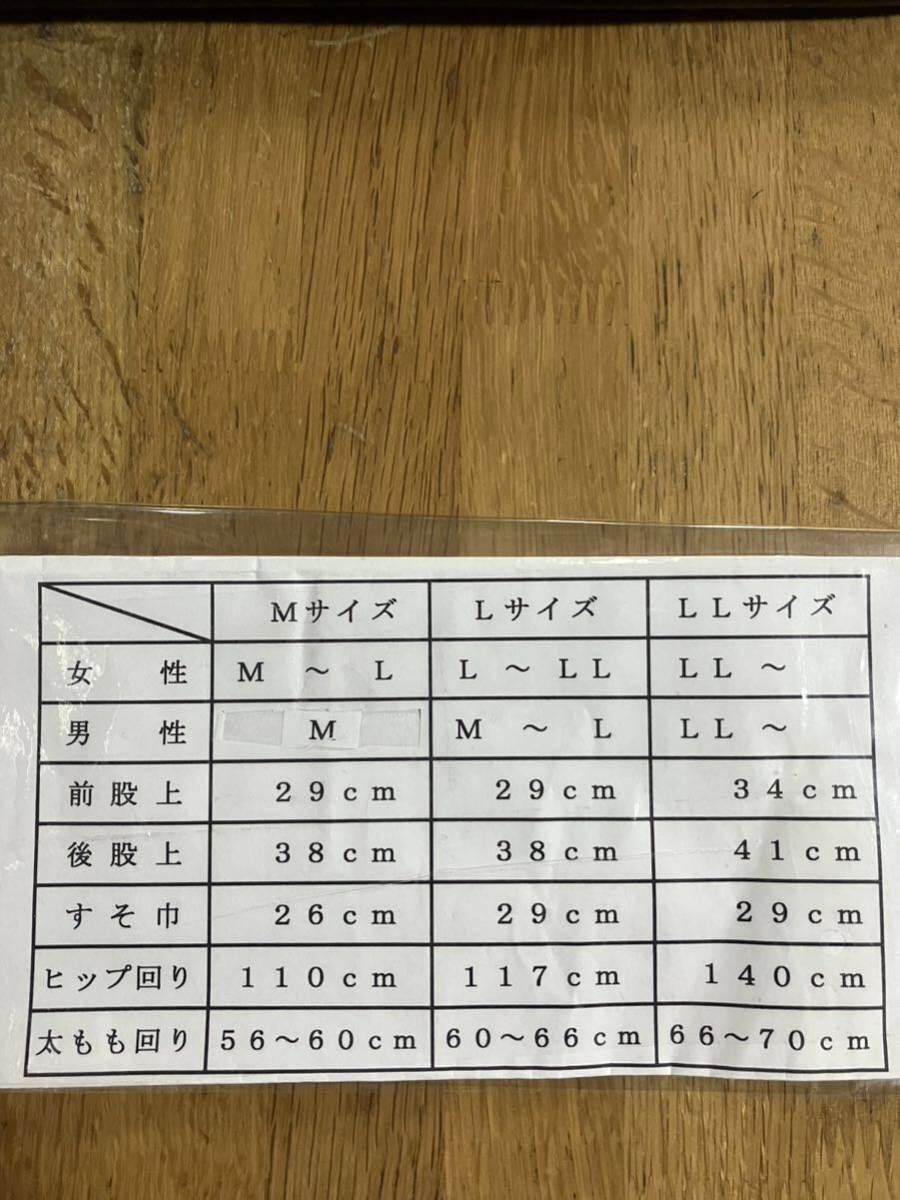 Mサイズ Lサイズ LLサイズ
女性 M ～ L L ～ LL LL ～
男性 M M ～ L LL ～
前股上 29cm 29cm 34cm
後股上 38cm 38cm 41cm
すそ巾 26cm 29cm 29cm
ヒップ回り 110cm 117cm 140cm
太もも回り 56～60cm 60～66cm 66～70cm